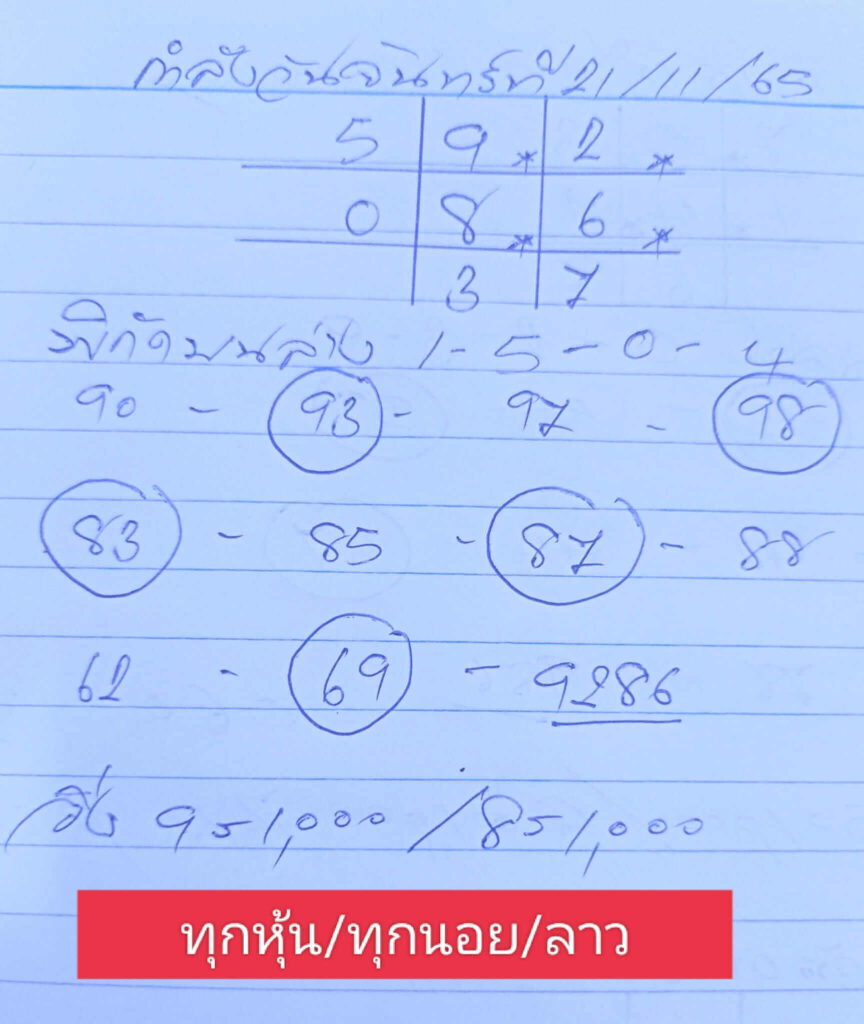 กำลังวันจันทร์ที่ 21/11/65
5 9* 2*
0 8* 6*
3 7
พิกัดบนล่าง 1-5-0-4
90 - 93 - 97 - 98
83 - 85 - 87 - 88
62 - 69 - 9286
วิ่ง 951,000 / 851,000
ทุกหุ้น/ทุกนอย/ลาว